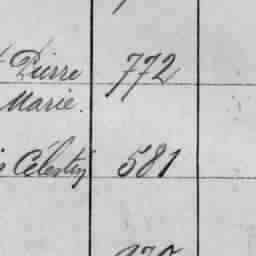 Pierre 772
Marie.
Célestin 581